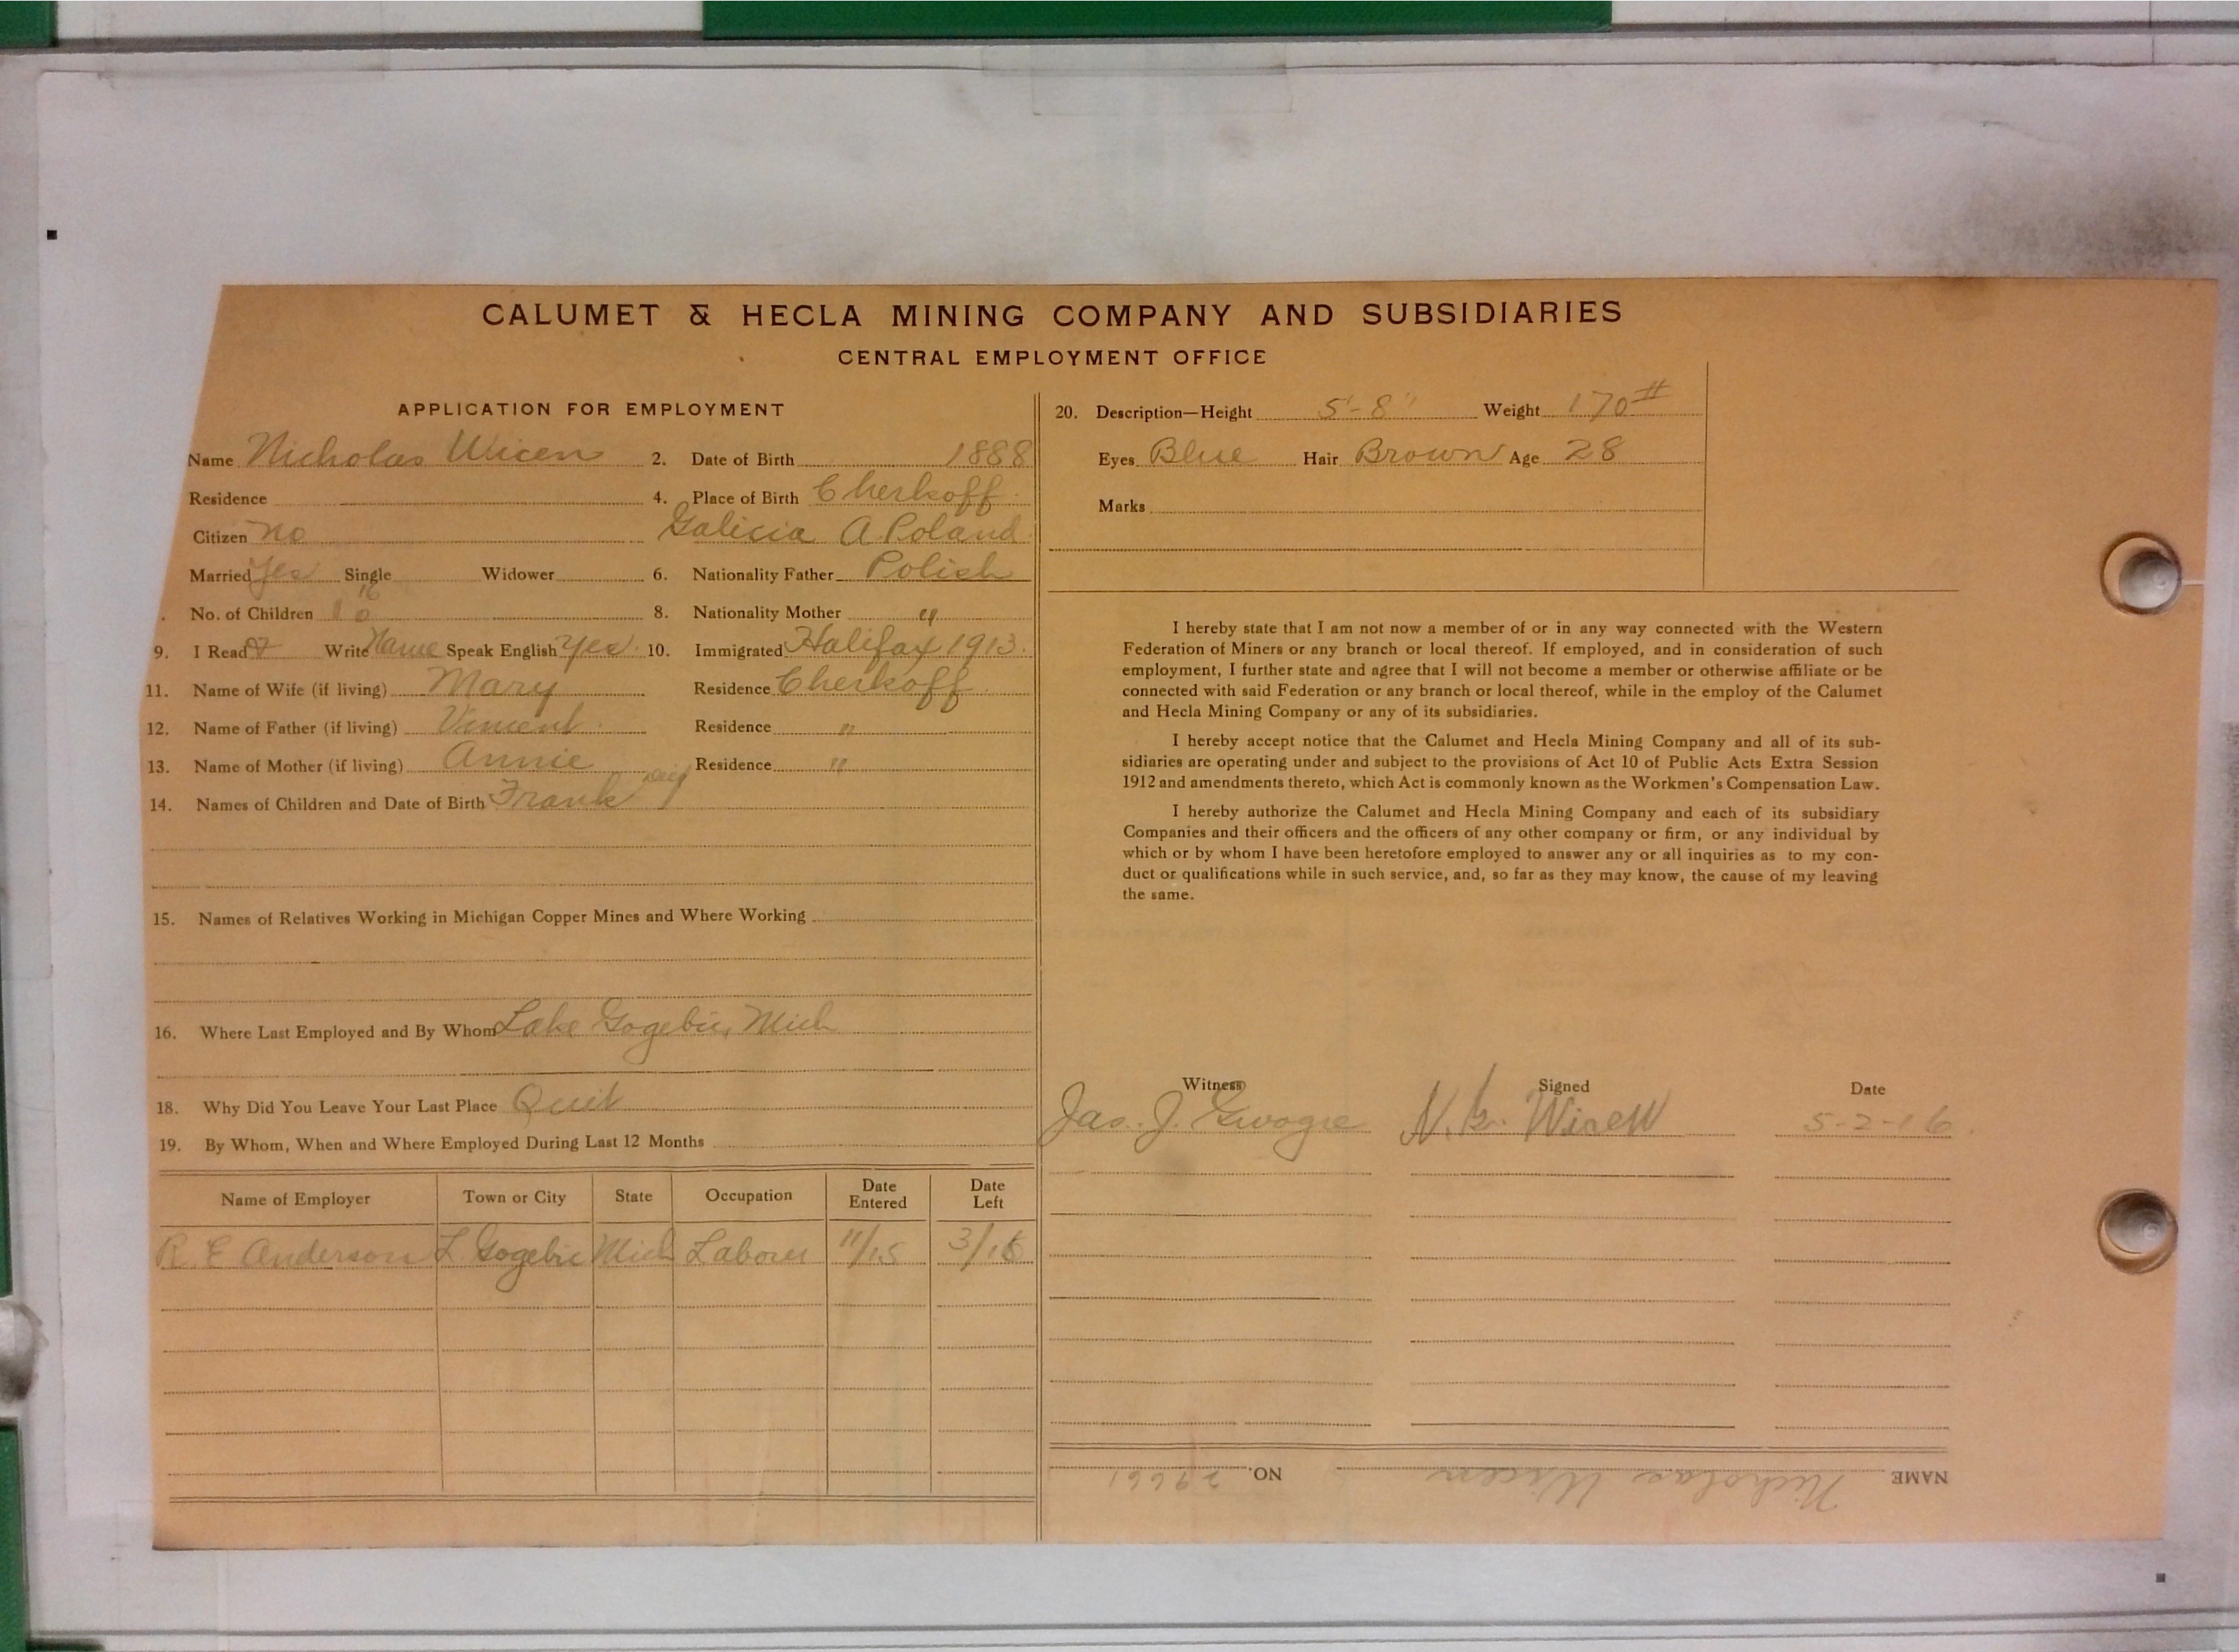 CALUMET & HECLA MINING COMPANY AND SUBSIDIARIES
CENTRAL EMPLOYMENT OFFICE
APPLICATION FOR EMPLOYMENT
Name Nicholas Wicen 2. Date of Birth 1888
Residence 4. Place of Birth Cherkoff
Citizen No Galicia A. Poland
Married Yes Single Widower 6. Nationality Father Polish
No. of Children 8. Nationality Mother "
9. I Read Write Name Speak English Yes. 10. Immigrated Halifax 1913.
11. Name of Wife (if living) Mary Residence Cherkoff
12. Name of Father (if living) Vincent Residence "
13. Name of Mother (if living) Annie Residence "
14. Names of Children and Date of Birth Frank
15. Names of Relatives Working in Michigan Copper Mines and Where Working
16. Where Last Employed and By Whom Lake Gogebic, Mich
18. Why Did You Leave Your Last Place Quit
19. By Whom, When and Where Employed During Last 12 Months
Name of Employer Town or City State Occupation Date Entered Date Left
R. E Anderson L. Gogebic Mich Laborer 11/15 3/16
20. Description—Height 5'-8" Weight 170#
Eyes Blue Hair Brown Age 28
Marks
I hereby state that I am not now a member of or in any way connected with the Western
Federation of Miners or any branch or local thereof. If employed, and in consideration of such
employment, I further state and agree that I will not become a member or otherwise affiliate or be
connected with said Federation or any branch or local thereof, while in the employ of the Calumet
and Hecla Mining Company or any of its subsidiaries.
I hereby accept notice that the Calumet and Hecla Mining Company and all of its sub-
sidiaries are operating under and subject to the provisions of Act 10 of Public Acts Extra Session
1912 and amendments thereto, which Act is commonly known as the Workmen's Compensation Law.
I hereby authorize the Calumet and Hecla Mining Company and each of its subsidiary
Companies and their officers and the officers of any other company or firm, or any individual by
which or by whom I have been heretofore employed to answer any or all inquiries as to my con-
duct or qualifications while in such service, and, so far as they may know, the cause of my leaving
the same.
Witness Signed Date
Jas. J. N. Wicen 5-2-16
NAME Nicholas Wicen NO. 29661